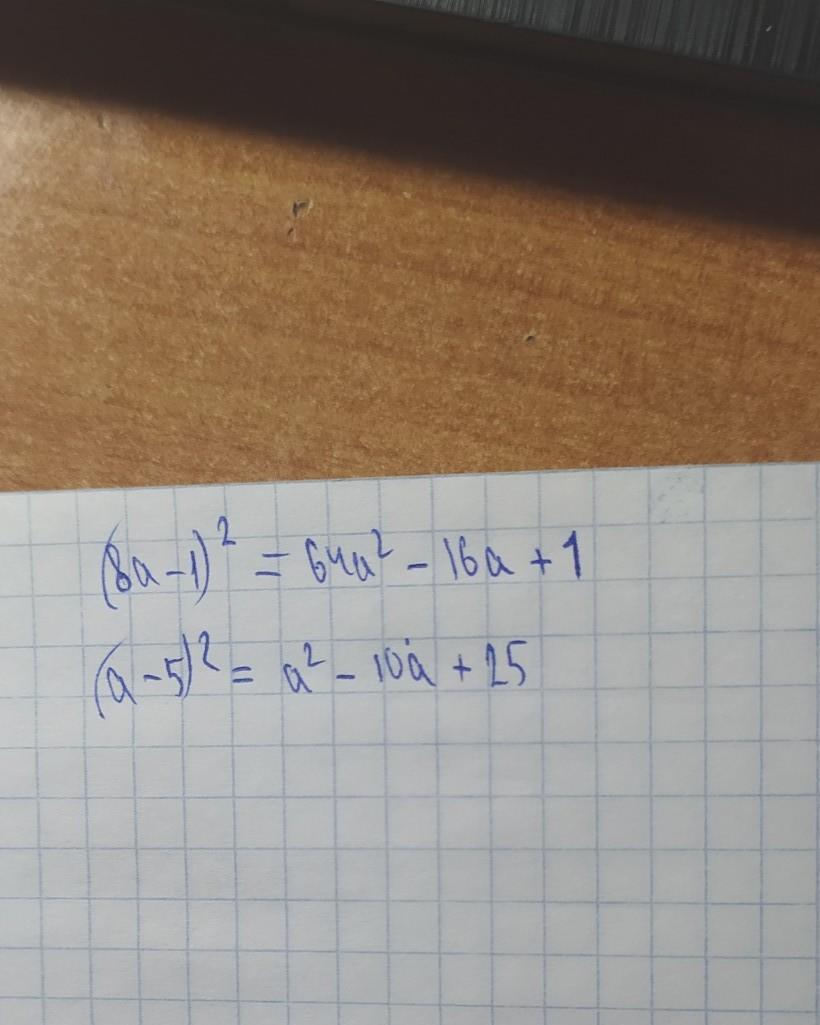 (8a-1)² = 64a² - 16a + 1
(a-5)² = a² - 10a + 25